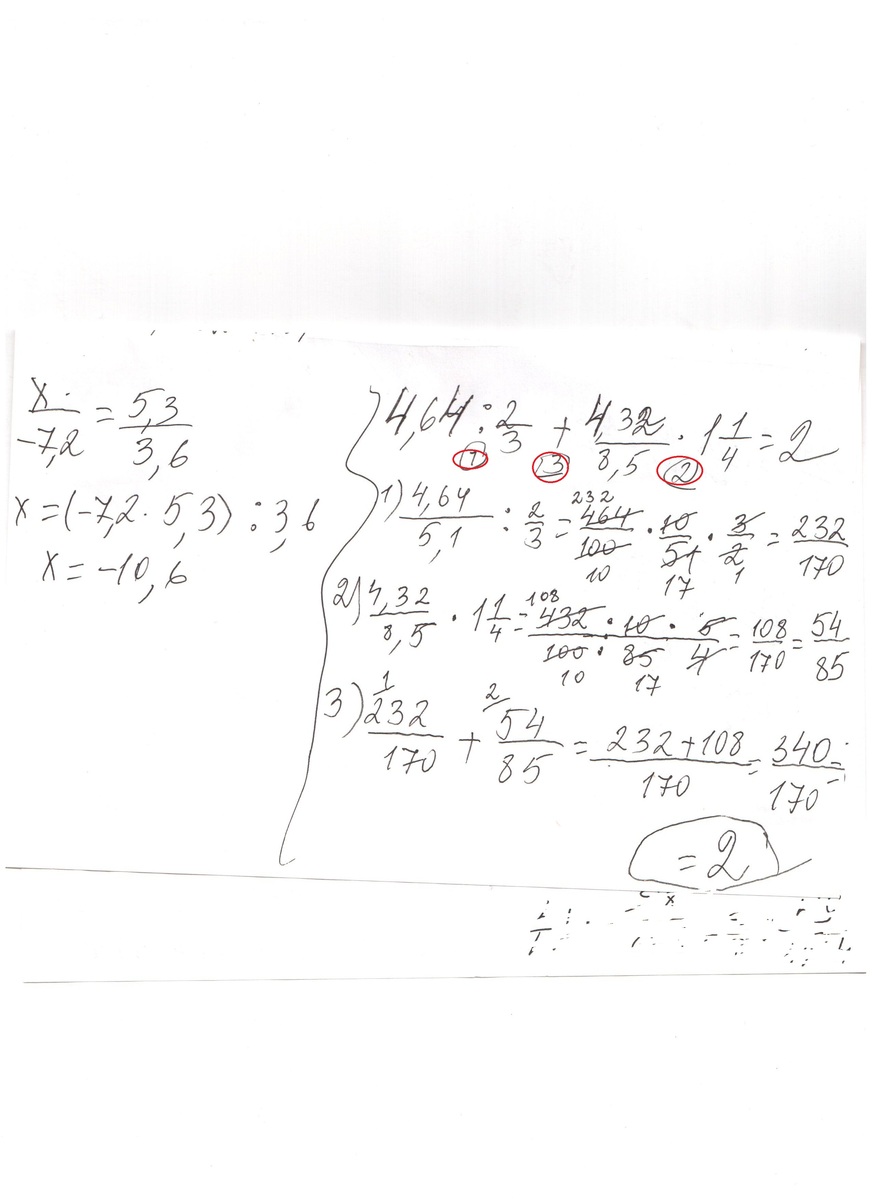 x/-7,2 = 5,3/3,6
x = (-7,2 · 5,3) : 3,6
x = -10,6
4,64 : 2/3 + 4,32/8,5 · 1 1/4 = 2
1 3 2
1) 4,64/5,1 : 2/3 = 464/100 · 10/51 · 3/2 = 232/170
232
10 17 1
2) 4,32/8,5 · 1 1/4 = 432 · 10 · 5/100 · 85 4 = 108/170 = 54/85
108
10 17
3) 232/170 + 54/85 = 232+108/170 = 340/170 =
1 2
= 2